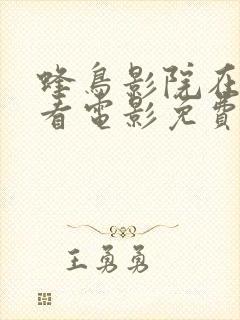 蜂鳥影院在
看電影免費
王勇勇